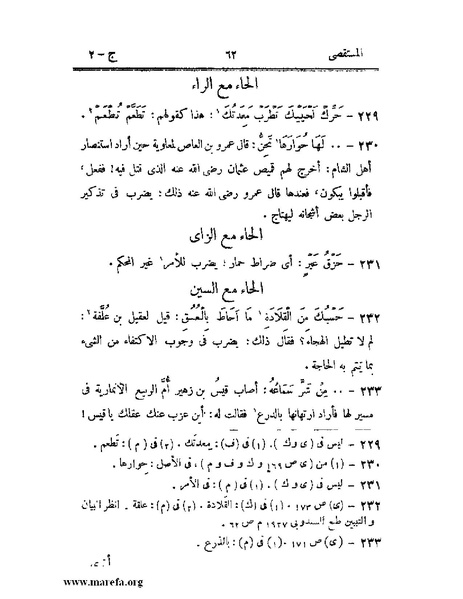 المستقصى ٦٢ ج - ٢
الحاء مع الراء
٢٢٩ - حَرِّكْ لَحْيَيْكَ تَطْرَبْ مَعِدَتُكَ: هذا كقولهم: تَطَعَّمْ تُطْعَمْ.
٢٣٠ - .. لَهَا حُوَارَهَا تَحِنُّ: قال عمرو بن العاص لمعاوية حين أراد استنصار
أهل الشام: أخرج لهم قميص عثمان رضى الله عنه الذى قتل فيه! ففعل،
فأقبلوا يبكون، فعندها قال عمرو رضى الله عنه ذلك: يضرب فى تذكير
الرجل بعض أشجانه ليهتاج.
الحاء مع الزاى
٢٣١ - حَزْقُ عَيْرٍ: أى ضراط حمار؛ يضرب للأمر غير المحكم.
الحاء مع السين
٢٣٢ - حَسْبُكَ مِنَ القِلَادَةِ مَا أَحَاطَ بِالْعُنُقِ: قيل لعقيل بن عُلَّفة:
لم لا تطيل الهجاء؟ فقال ذلك: يضرب فى وجوب الاكتفاء من الشىء
بما يتم به الحاجة.
٢٣٣ - .. مِنْ شَرٍّ سَمَاعُهُ: أصاب قيسُ بن زهير أُمَّ الربيع الأنمارية فى
مسير لها فأراد ارتهانها بالدرع فقالت له: أين عزب عنك عقلك يا قيس!
٢٢٩ - ليس فى (ى و ك). (١) فى (ف): معدتك. (٢) فى (م): تطعم.
٢٣٠ - (١) من (ى ص ١٦٩ و ك و ف و م)، فى الأصل: حوارها.
٢٣١ - ليس فى (ى و ك). (١) فى (م): فى الأمر.
٢٣٢ - (ى) ص ١٧٣. (١) فى (ك): القلادة. (٢) فى (م): علقة. انظر البيان
و التبيين طبع السندوبى ١٩٢٧ م ص
٢٣٣ - (ى) ص ١٧١. (١) فى (م): بالذرع.
www.marefa.org